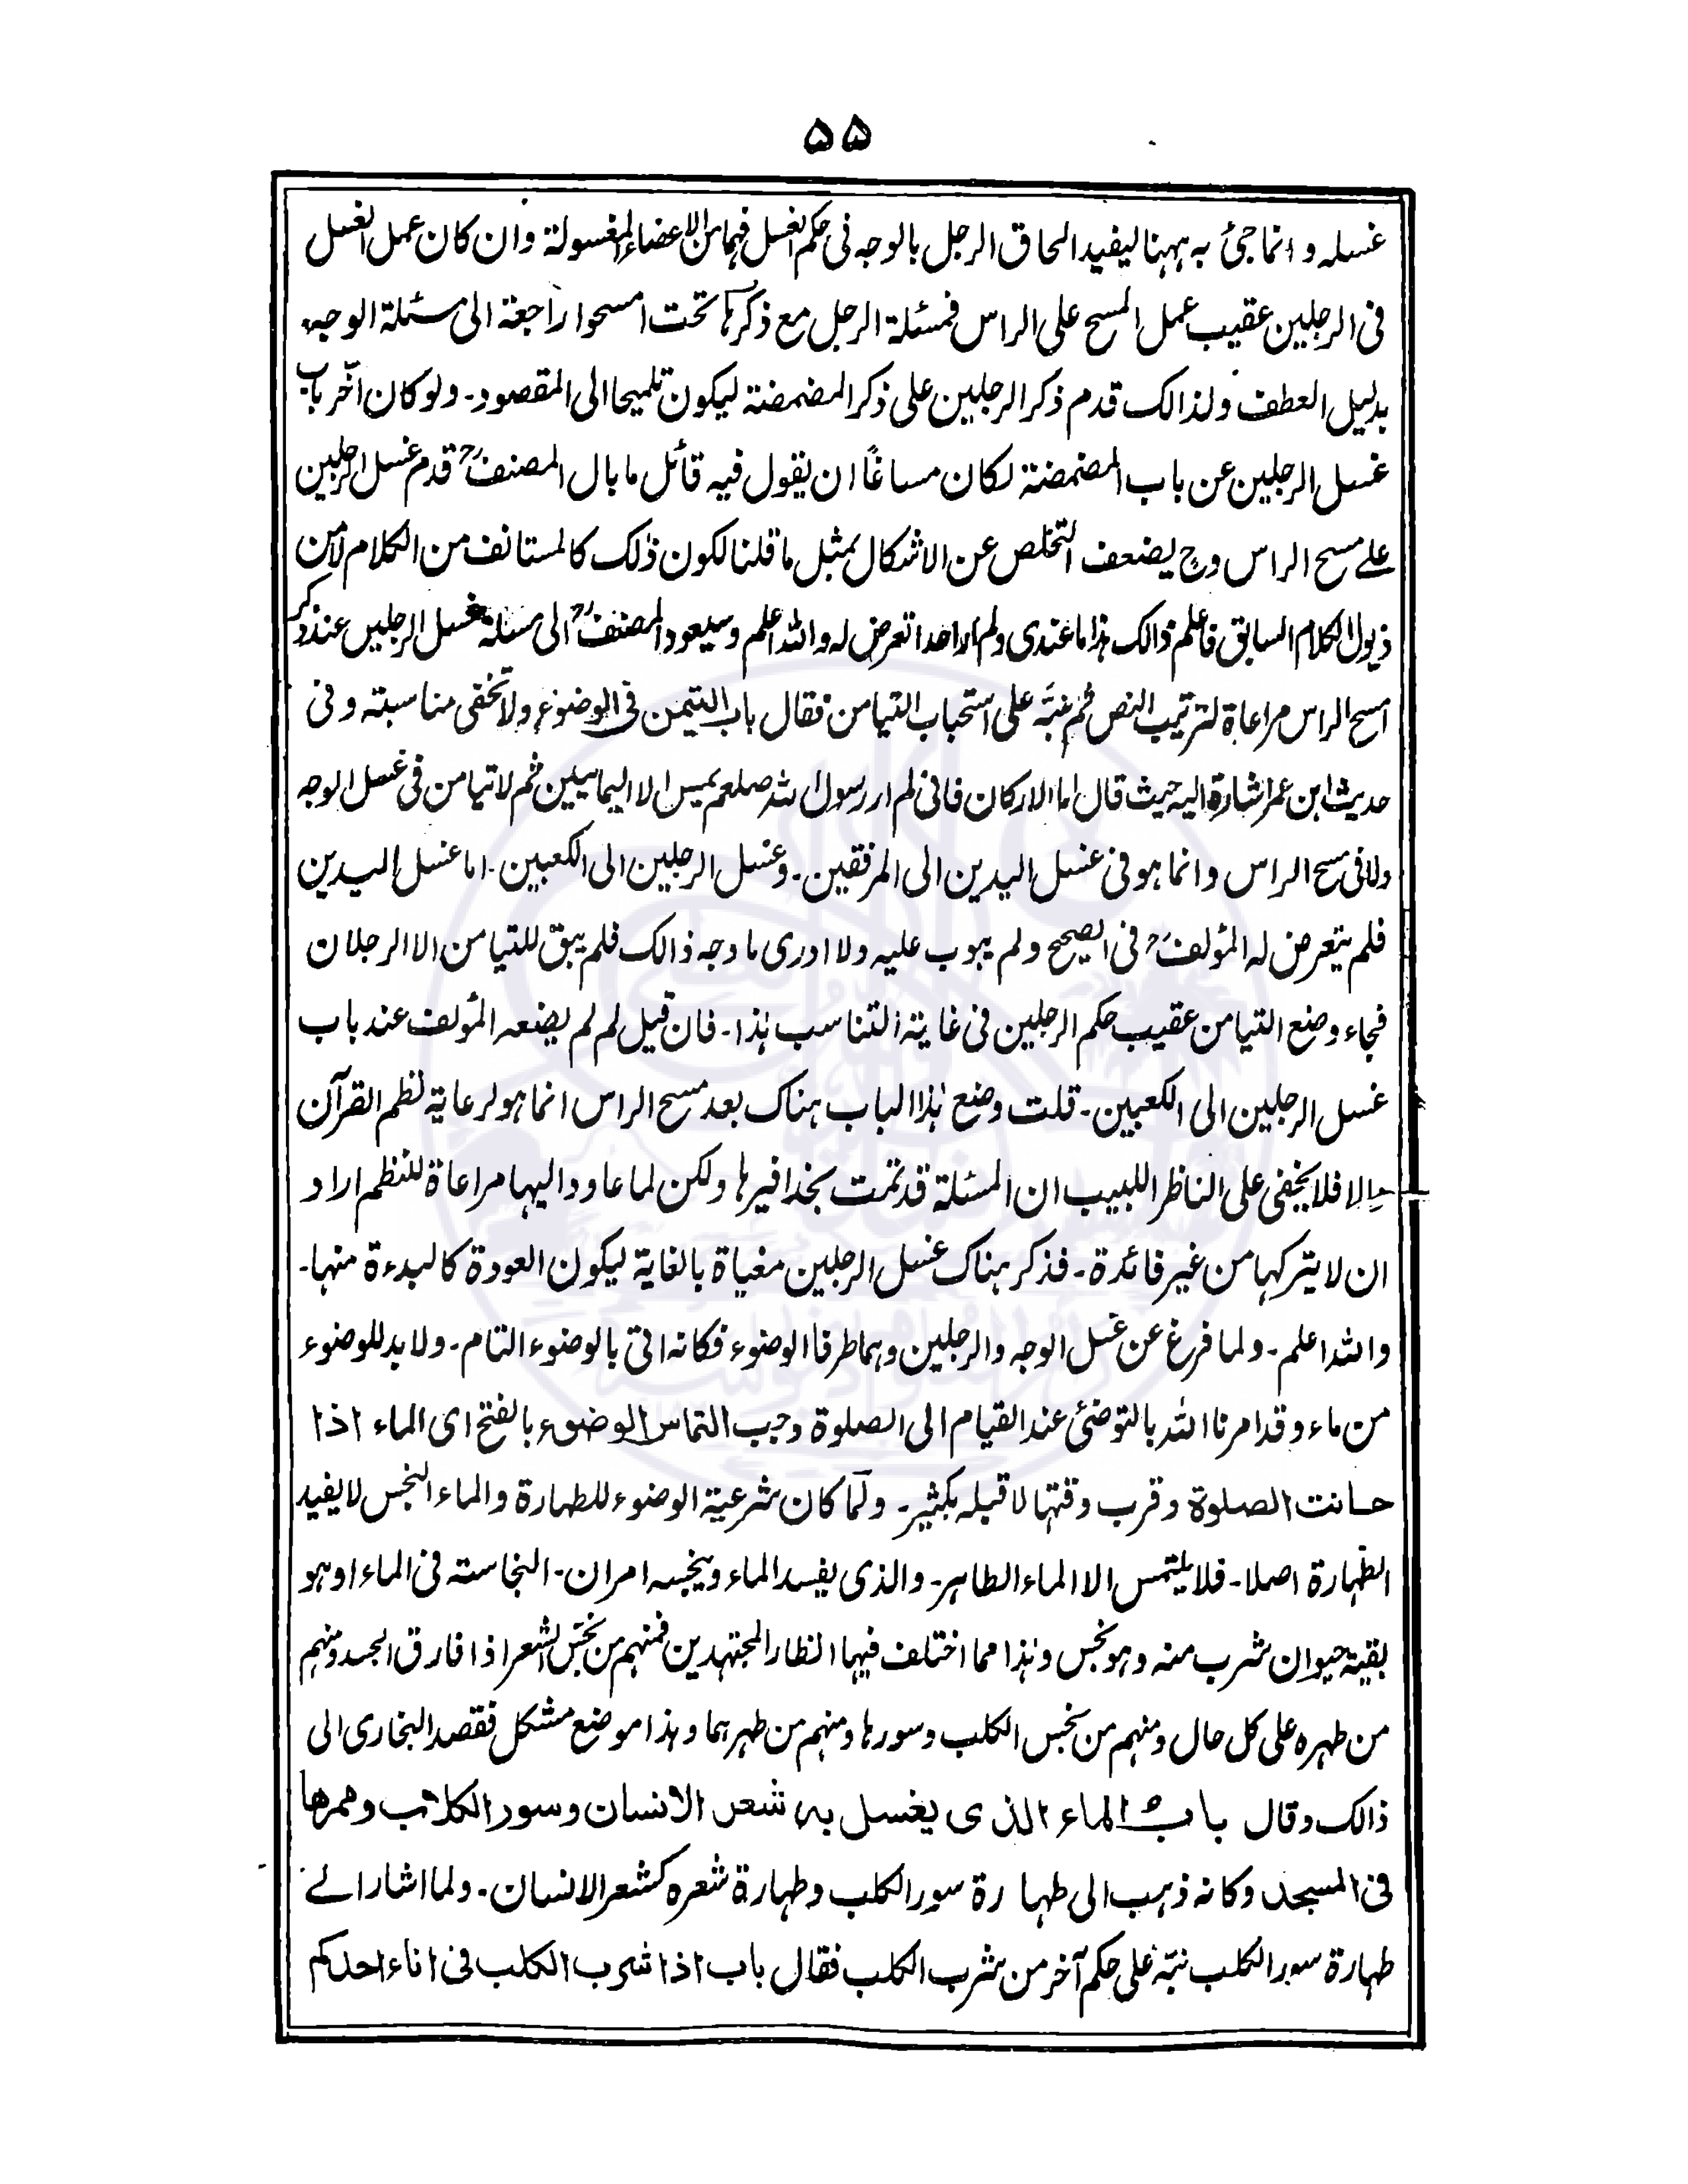 ۵۵
غسله وانما جئ به ههنا ليفيد الحاق الرجل بالوجه فى حكم الغسل فهما من الاعضاء المغسولة وان كان عمل الغسل
فى الرجلين عقيب عمل المسح على الراس فمسئلة الرجل مع ذكرها تحت امسحوا راجعة الى مسئلة الوجه
بدليل العطف ولذالك قدم ذكر الرجلين على ذكر المضمضة ليكون تلميحا الى المقصود۔ ولو كان آخر باب
غسل الرجلين عن باب المضمضة لكان مساغًا ان يقول فيه قائل ما بال المصنفؒ قدم غسل الرجلين
على مسح الراس وح يضعف التخلص عن الاشكال بمثل ما قلنا لكون ذٰلك كالمستانف من الكلام لا من
ذيول الكلام السابق فاعلم ذالك هذا ما عندى ولم ار احدا تعرض له والله اعلم وسيعود المصنفؒ الى مسئلة غسل الرجلين عند ذكر
مسح الراس مراعاة لترتيب النص ثم نبَّه على استحباب التيامن فقال باب التيمن فى الوضوء ولا تخفى مناسبته وفى
حديث ابن عمر اشارة اليه حيث قال اما الاركان فانى لم ار رسول الله صلعم يمس الا اليمانيين ثم لا تيامن فى غسل الوجه
ولا فى مسح الراس وانما هو فى غسل اليدين الى المرفقين۔ وغسل الرجلين الى الكعبين۔ اما غسل اليدين
فلم يتعرض له المؤلفؒ فى الصحيح ولم يبوب عليه ولا ادرى ما وجه ذالك فلم يبق للتيامن الا الرجلان
فجاء وضع التيامن عقيب حكم الرجلين فى غاية التناسب هٰذا۔ فان قيل لم لم يضعه المؤلف عند باب
غسل الرجلين الى الكعبين۔ قلت وضع هٰذا الباب هناك بعد مسح الراس انما هو لرعاية نظم القرآن
والا فلا يخفى على الناظر اللبيب ان المسئلة قد تمت بحذافيرها ولكن لما عاود اليها مراعاة للنظم اراد
ان لا يتركها من غير فائدة۔ فذكر هناك غسل الرجلين مغياة بالغاية ليكون العودة كالبدءة منها۔
والله اعلم۔ ولما فرغ عن غسل الوجه والرجلين وهما طرفا الوضوء فكانه اتى بالوضوء التام۔ ولا بد للوضوء
من ماء وقد امرنا الله بالتوضئ عند القيام الى الصلوة وجب التماس الوضوء بالفتح اى الماء اذا
حانت الصلوة وقرب وقتها لا قبله بكثير۔ ولمّا كان شرعية الوضوء للطهارة والماء النجس لا يفيد
الطهارة اصلا۔ فلا يلتمس الا الماء الطاهر۔ والذى يفسد الماء وينجسه امران۔ النجاسة فى الماء او هو
بقية حيوان شرب منه وهو نجس وهٰذا مما اختلف فيها انظار المجتهدين فمنهم من نجّس الشعر اذا فارق الجسد ومنهم
من طهره على كل حال ومنهم من نجس الكلب وسورها ومنهم من طهرهما وهذا موضع مشكل فقصد البخارى الى
ذالك وقال باب الماء الذى يغسل به شعر الانسان وسور الكلاب وممرها
فى المسجد وكانه ذهب الى طهارة سور الكلب وطهارة شعره كشعر الانسان۔ ولما اشار الى
طهارة سور الكلب نبّه على حكم آخر من شرب الكلب فقال باب اذا شرب الكلب فى اناء احدكم